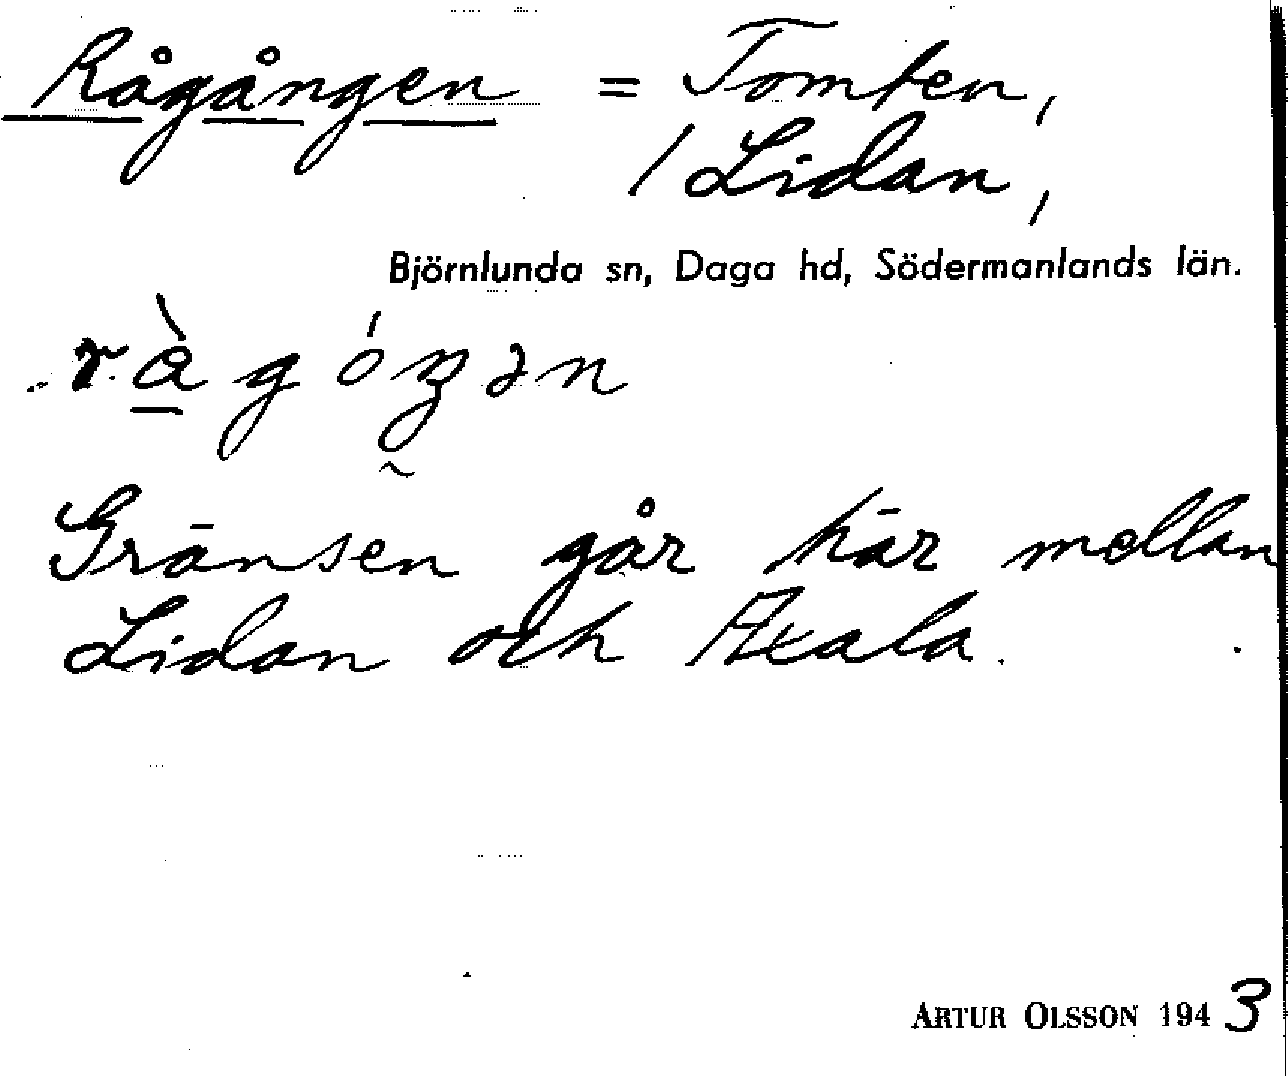 Rågången = Tomten,
/ Lidan,
Björnlunda sn, Daga hd, Södermanlands län.
Gränsen går här mellan
Lidan och Axala.
ARTUR OLSSON 1943